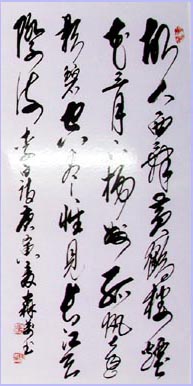 故人西辞黄鶴樓煙
花三月下揚州孤帆遠
影碧空尽惟見長江天
際流 李白詩 庚寅夏森书